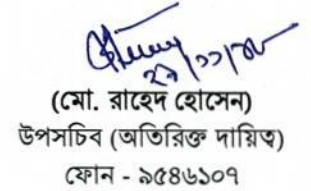 ২৯/১১/১৮
(মো. রাহেদ হোসেন)
উপসচিব (অতিরিক্ত দায়িত্ব)
ফোন - ৯৫৪৬১০৭